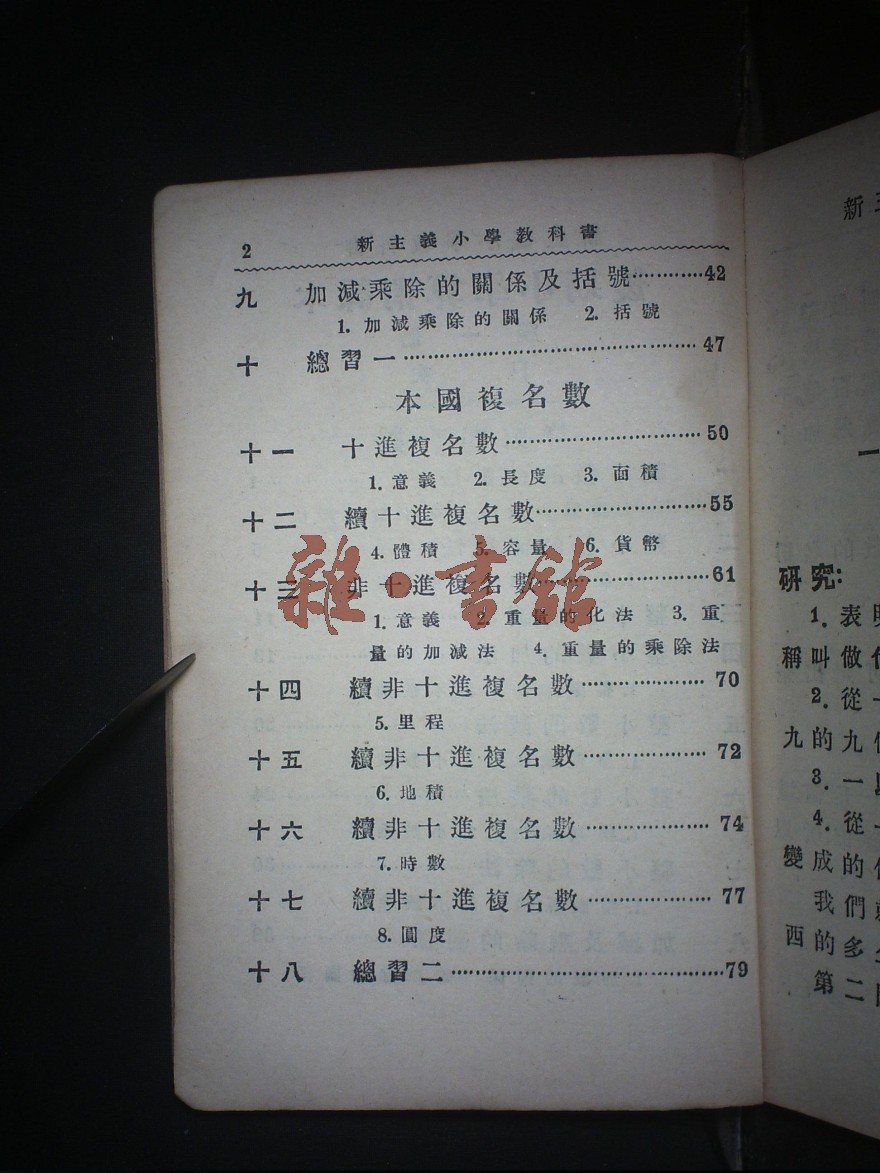 2 新主義小學教科書
九 加減乘除的關係及括號············42
1. 加減乘除的關係 2. 括號
十 總習一················································47
本國複名數
十一 十進複名數································50
1. 意義 2. 長度 3. 面積
十二 續十進複名數································55
4. 體積 5. 容量 6. 貨幣
十三 非十進複名數·····························61
1. 意義 2. 重量的化法 3. 重
量的加減法 4. 重量的乘除法
十四 續非十進複名數····················70
5. 里程
十五 續非十進複名數····················72
6. 地積
十六 續非十進複名數····················74
7. 時數
十七 續非十進複名數····················77
8. 圓度
十八 總習二············································79
雜·書館
新
一
研究:
1. 表
稱叫做
2. 從
九的九
3. 一
4. 從
變成的
我們
西的多
第二